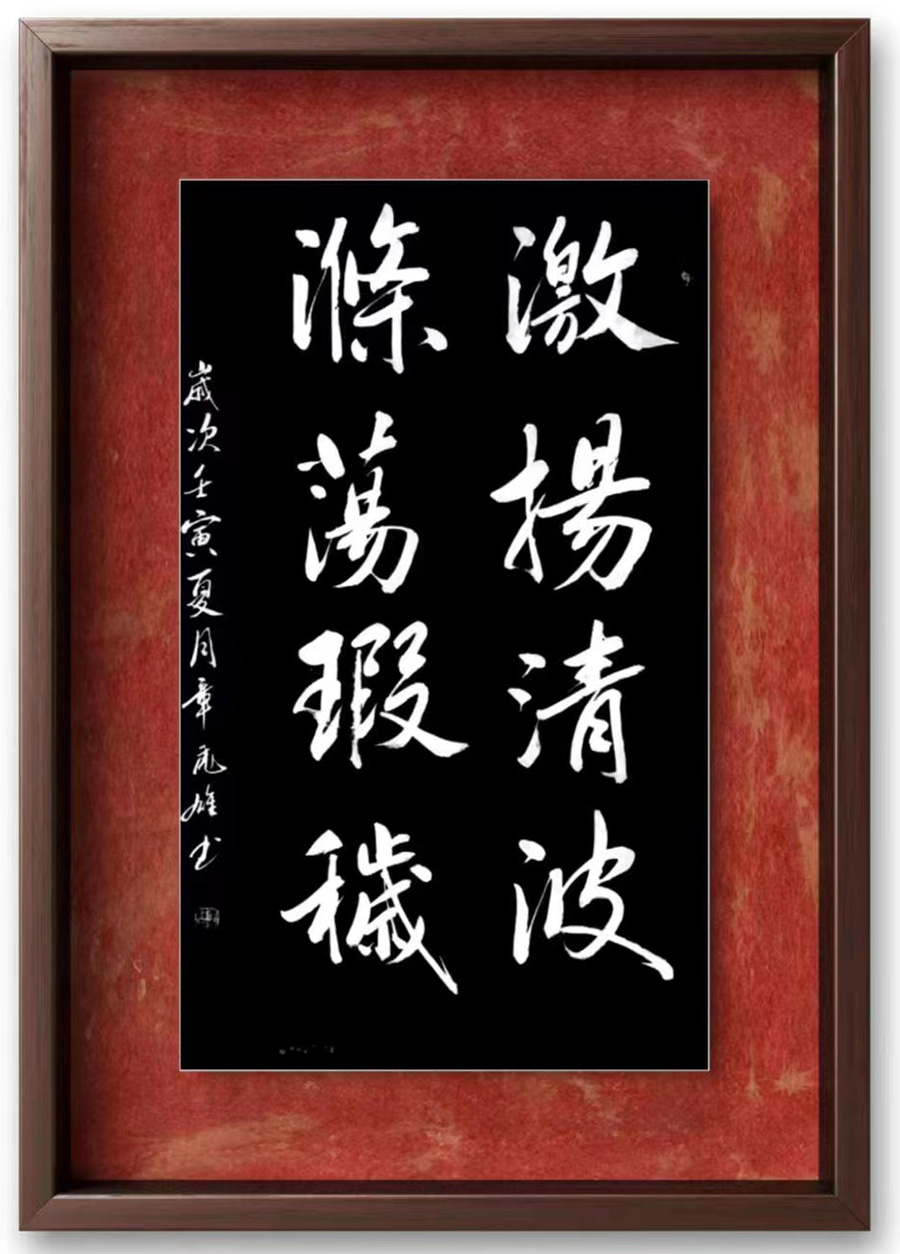 激揚清波
滌蕩瑕穢
歲次壬寅夏月章雄书